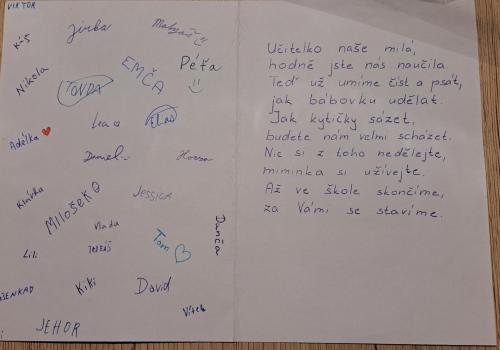 VIKTOR
K-S
Jirka
Matyáš
Nikola
TONDA
EMČA
Péťa
Adélka
Lea
Elas
Daniel
Honza
Klárka
Milošek
Jessica
Vláďa
Danča
Lili
TEREÁŠ
Tom
Kiki
David
Vítek
JEHOR
Učitelko naše milá,
hodně jste nás naučila.
Teď už umíme číst a psát,
jak bábovku udělat.
Jak kytičky sázet,
budete nám velmi scházet.
Nic si z toho nedělejte,
miminka si užívejte.
Až ve škole skončíme,
za Vámi se stavíme.